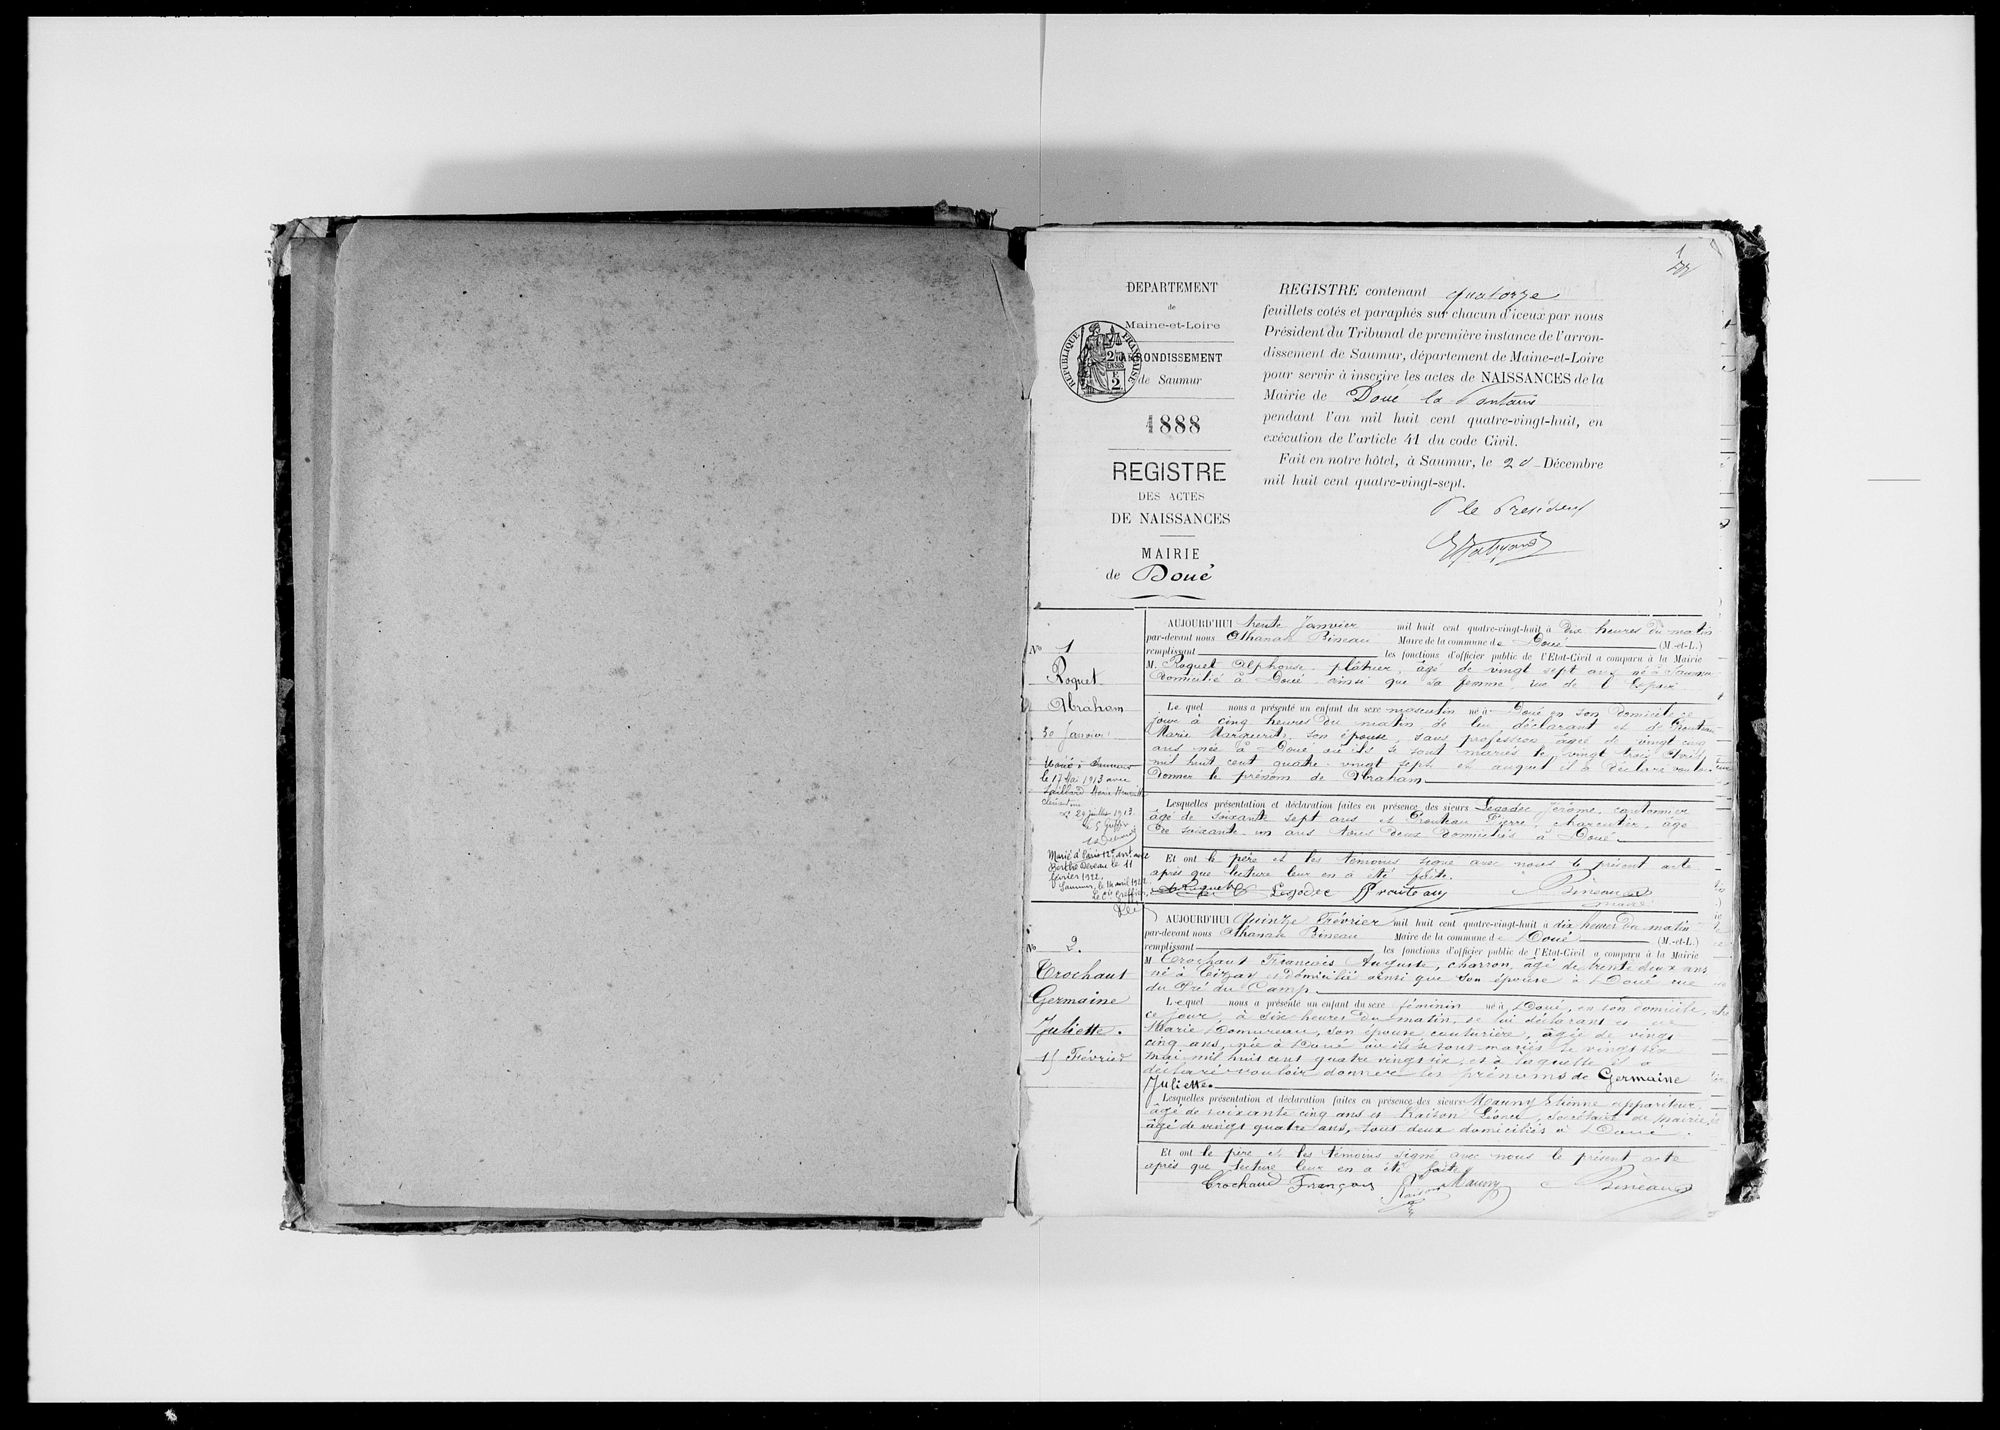 DEPARTEMENT
de
Maine-et-Loire
ARRONDISSEMENT
de Saumur
RÉPUBLIQUE FRANÇAISE
1888
REGISTRE
DES ACTES
DE NAISSANCES
MAIRIE
de Doué
REGISTRE contenant quatorze
feuillets cotés et paraphés sur chacun d'iceux par nous
Président du Tribunal de première instance de l'arron-
dissement de Saumur, département de Maine-et-Loire
pour servir à inscrire les actes de NAISSANCES de la
Mairie de Doué la Fontaine
pendant l'an mil huit cent quatre-vingt-huit, en
exécution de l'article 41 du code Civil.
Fait en notre hôtel, à Saumur, le Décembre
mil huit cent quatre-vingt-sept.
P le Président
No 1
Roquet
Abraham
30 Janvier
le 17 1913 avec
29 juillet 1913
Marié à Paris 12e arrt avec
Berthe Dereau le 11
février 1922.
Saumur, le 14 avril 1922
Le Greffier
AUJOURD'HUI trente Janvier mil huit cent quatre-vingt-huit à dix heures du matin
par-devant nous Athanase Bineau Maire de la commune de Doué (M.-et-L.)
remplissant les fonctions d'officier public de l'Etat-Civil a comparu à la Mairie
M. Roquet Alphonse plâtrier, âgé de vingt sept ans né à Saumur
Domicilié à Doué ainsi que sa femme rue de
Le quel nous a présenté un enfant du sexe masculin né à Doué en son domicile ce
jour à cinq heures du matin de lui déclarant et de
Marie Marguerite son épouse, sans profession âgée de vingt cinq
ans née à Doué où ils se sont mariés le vingt trois Avril
mil huit cent quatre-vingt sept et auquel il a déclaré vouloir
donner le prénom de Abraham
Lesquelles présentation et déclaration faites en présence des sieurs Legodec Jérôme, cantonnier
âgé de soixante sept ans et Prouteau Pierre, charcutier, âgé
de soixante un ans tous deux domiciliés à Doué
Et ont le père et les témoins signé avec nous le présent acte
après que lecture leur en a été faite.
Roquet Legodec Prouteau Bineau
maire
No 2.
Crochaut
Germaine
Juliette.
15 Février
AUJOURD'HUI Quinze Février mil huit cent quatre-vingt-huit à dix heures du matin
par-devant nous Athanase Bineau Maire de la commune de Doué (M.-et-L.)
remplissant les fonctions d'officier public de l'Etat-Civil a comparu à la Mairie
M Crochaut François Auguste, charron, âgé de trente deux ans
né à Cizay et domicilié ainsi que son épouse à Doué rue
du Pré du Camp.
Lequel nous a présenté un enfant du sexe féminin né à Doué, en son domicile,
ce jour, à six heures du matin, de lui déclarant et de
Marie son épouse, couturière, âgée de vingt
cinq ans, née à Doué où ils se sont mariés le vingt six
mai mil huit cent quatre vingt six, et à laquelle il a
déclaré vouloir donner les prénoms de Germaine
Juliette.
Lesquelles présentation et déclaration faites en présence des sieurs Mauny Etienne appariteur,
âgé de soixante cinq ans et Raison Léonce, secrétaire de Mairie,
âgé de vingt quatre ans, tous deux domiciliés à Doué.
Et ont le père et les témoins signé avec nous le présent acte
après que lecture leur en a été faite
Crochaut François Raison Mauny Bineau